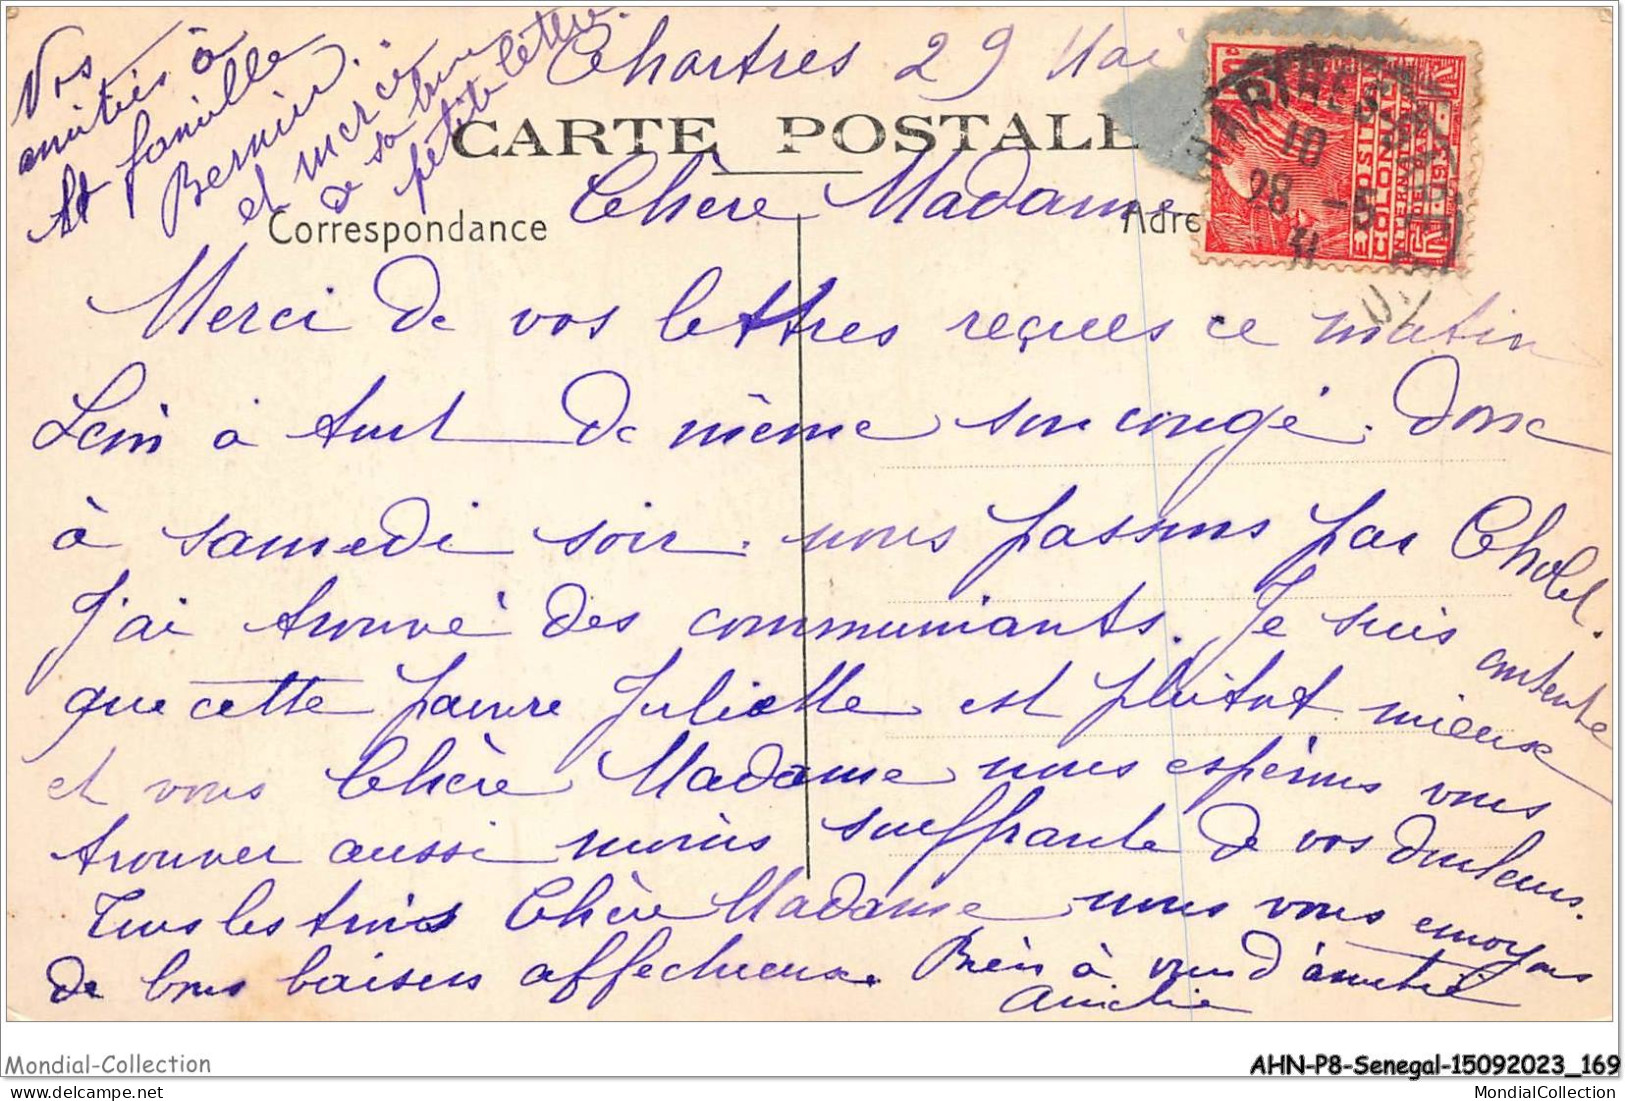 Vos
amitiés à
la famille
Bernier.
et merci
de sa bonne
petite lettre.
Chartres 29 Mai
CARTE POSTALE
Chère Madame
Correspondance
Adre
EXPOSITION
COLONIALE
INTERNATIONALE
10
28 -5
31
Merci de vos lettres reçues ce matin
à tout de même son congé. donc
à samedi soir. nous passons par Cholet.
J'ai trouvé des communiants. Je suis contente
que cette pauvre Juliette est plutot mieux
et vous Chère Madame nous espérons vous
trouver aussi moins souffrante de vos douleurs.
Tous les trois Chère Madame nous vous envoyons
de bons baisers affectueux. Bien à vous d'amitié
Mondial-Collection
AHN-P8-Senegal-15092023_169
MondialCollection